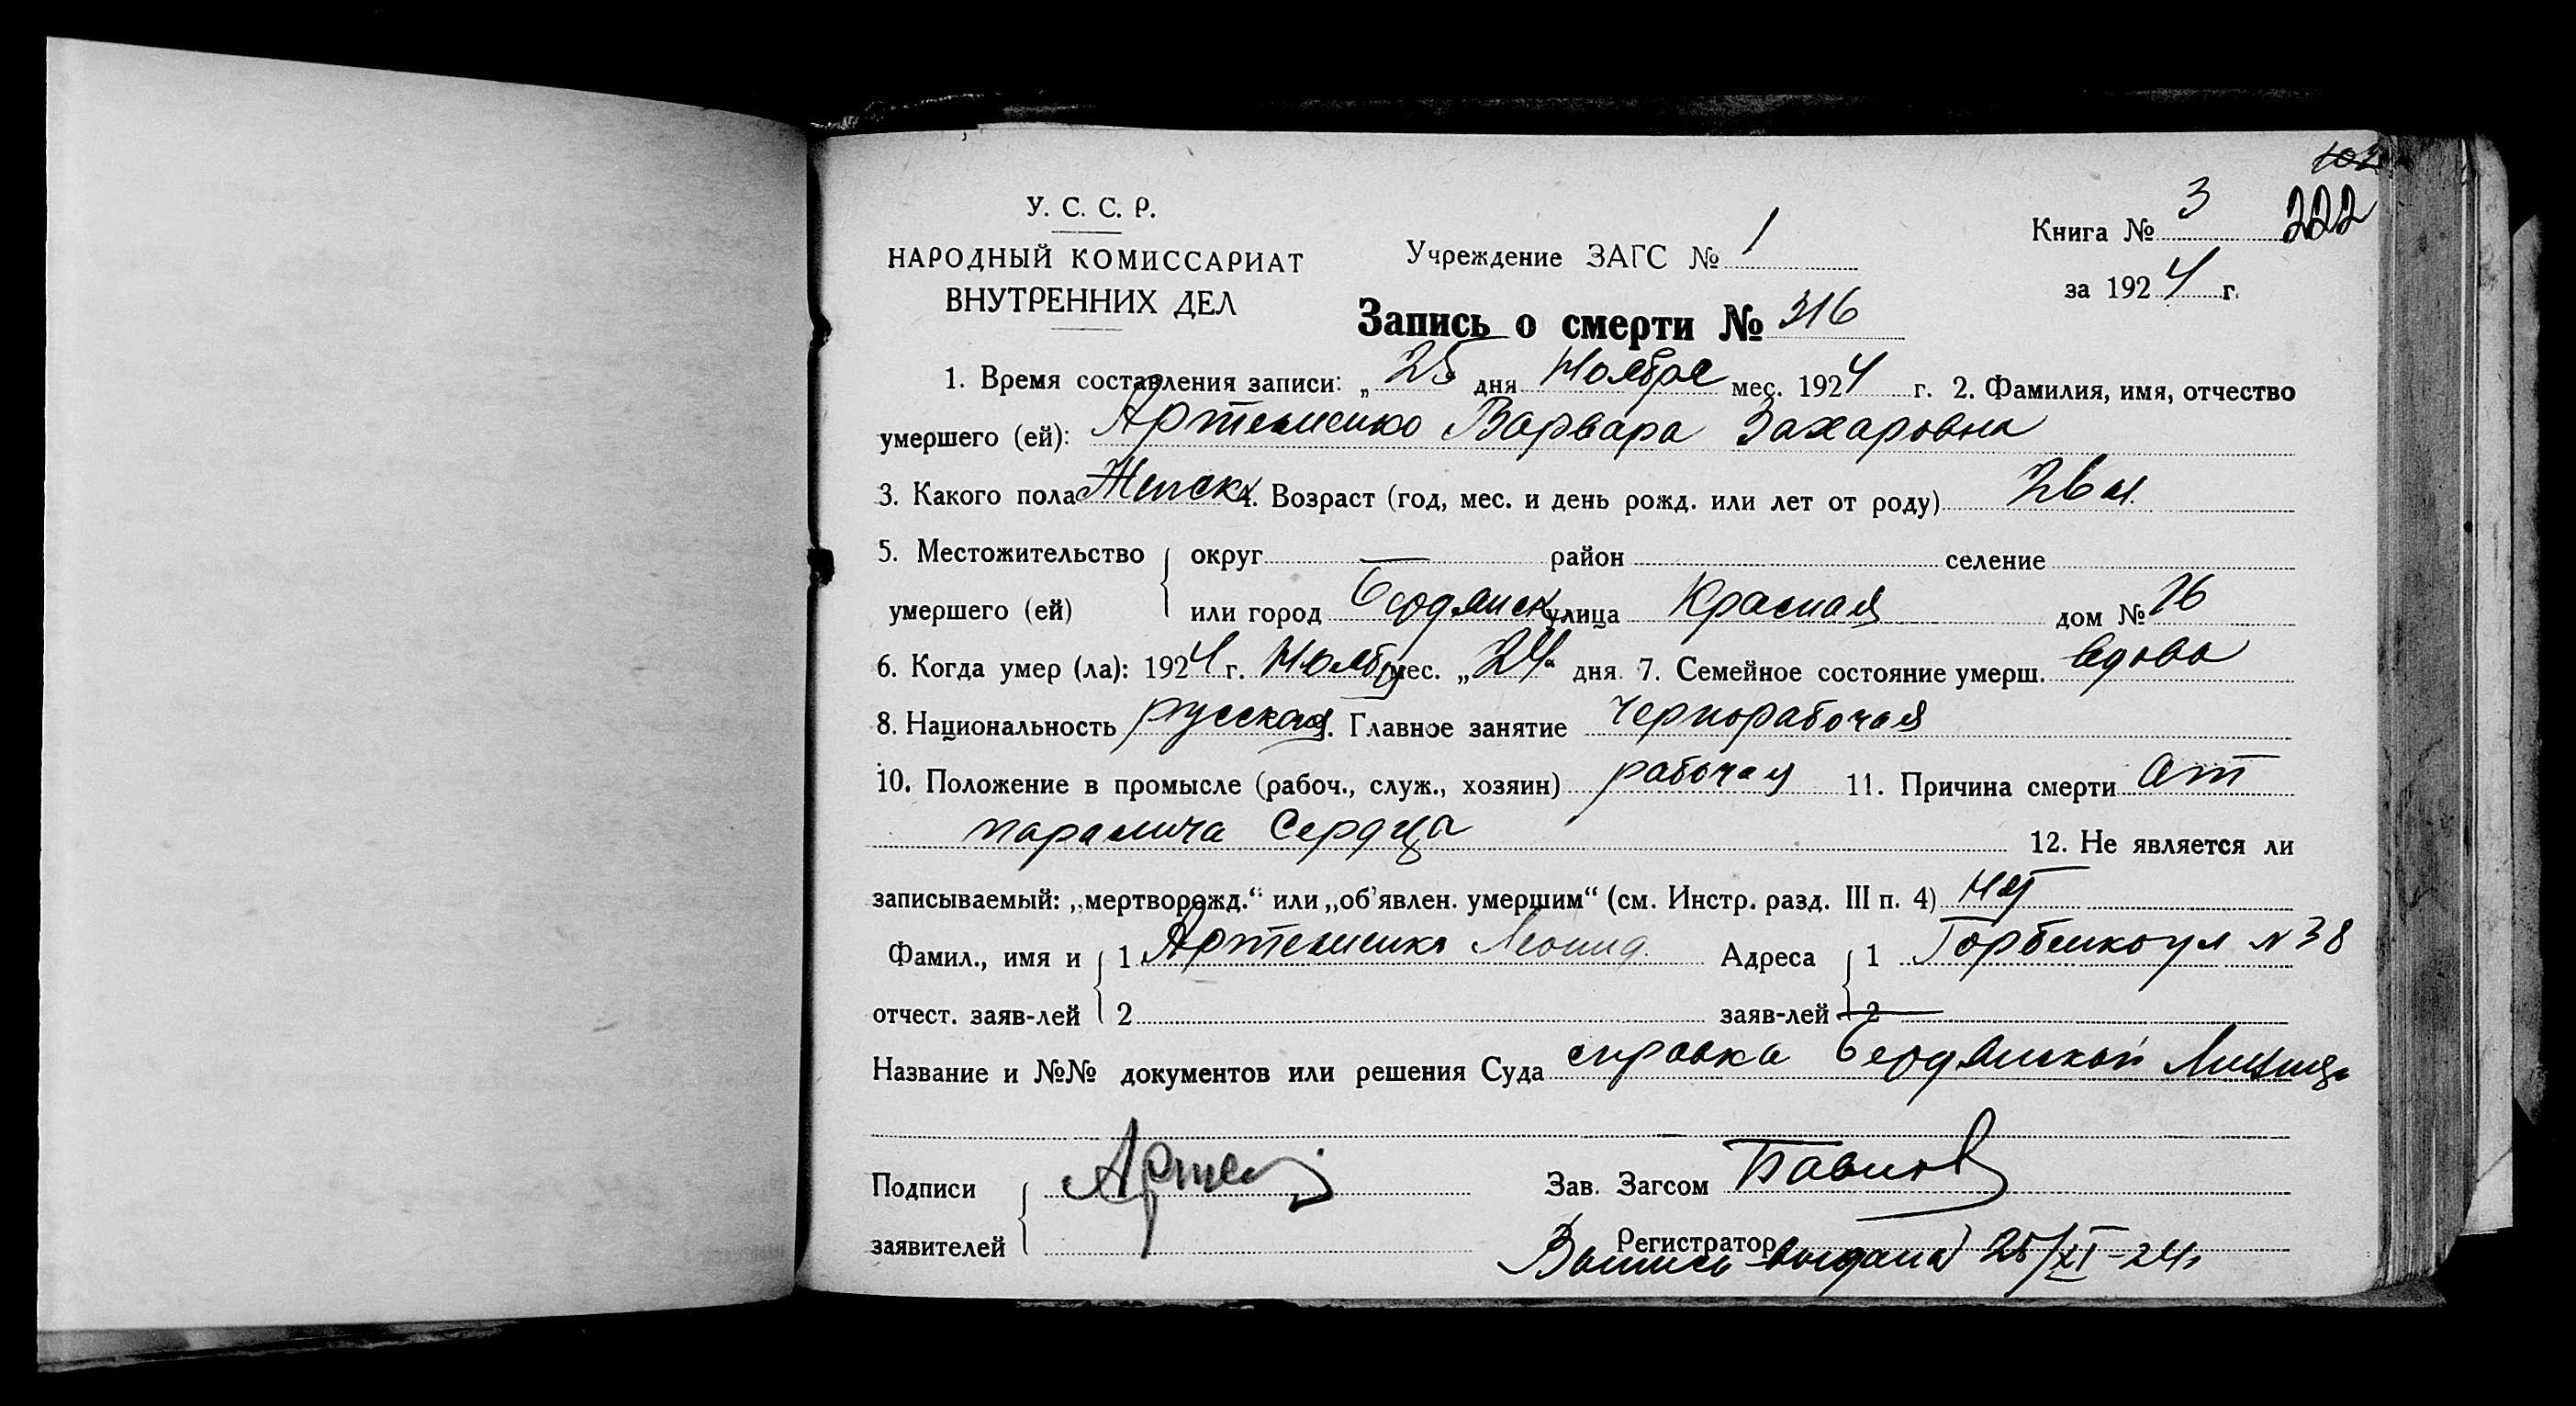 102
У. С. С. Р.
НАРОДНЫЙ КОМИССАРИАТ
ВНУТРЕННИХ ДЕЛ
Учреждение ЗАГС № 1
Книга № 3 222
за 1924 г.
Запись о смерти № 316
1. Время составления записи: „ 25 дня Ноября мес. 1924 г. 2. Фамилия, имя, отчество
умершего (ей): Артеменко Варвара Захаровна
3. Какого пола Женск 4. Возраст (год, мес. и день рожд. или лет от роду) 26 л.
5. Местожительство округ — район селение
умершего (ей) или город Бердянск улица Красная дом № 16
6. Когда умер (ла): 1924 г. Ноябр мес. „24“ дня. 7. Семейное состояние умерш. вдова
8. Национальность русская 9. Главное занятие чернорабочая
10. Положение в промысле (рабоч., служ., хозяин) рабочая 11. Причина смерти от
паралича Сердца 12. Не является ли
записываемый: „мертворожд.“ или „об'явлен. умершим“ (см. Инстр. разд. III п. 4) нет
Фамил., имя и 1 Артеменко Леонид. Адреса 1 Горбенко ул N 38
отчест. заяв-лей 2 заяв-лей 2
Название и №№ документов или решения Суда справка Бердянской
Подписи Артем Зав. Загсом
заявителей Регистратор
Выпись выдана 25/XI-24г